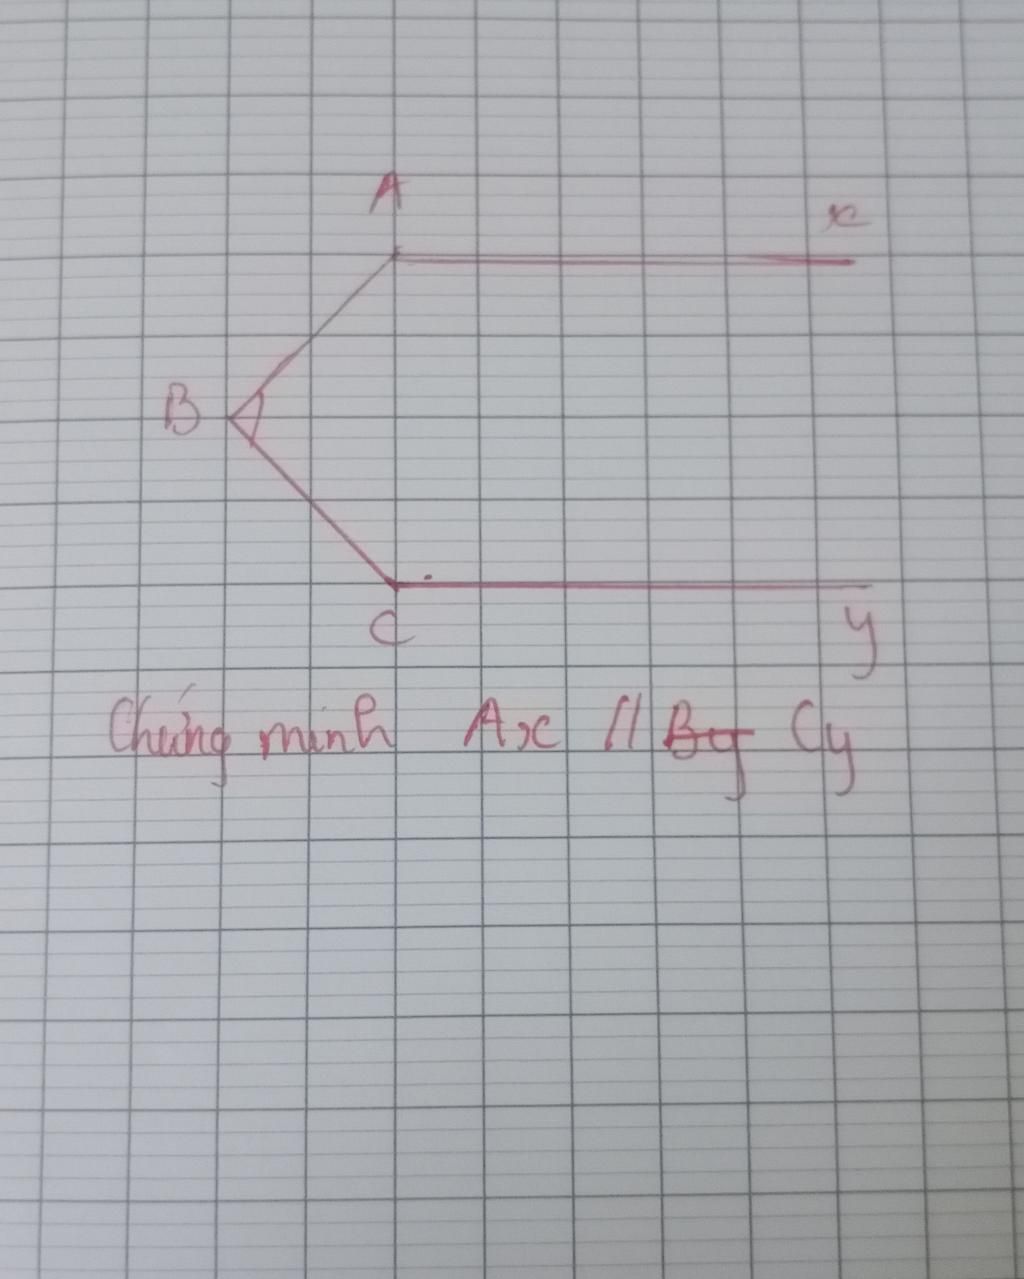 A
x
B
C
y
Chứng minh Ax // By Cy